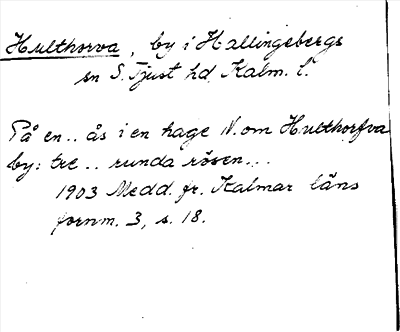 Hulthorva, by i Hallingebergs
sn S. Tjust hd. Kalm. l.
På en.. ås i en hage N. om Hulthorfva
by: tre.. runda rösen...
1903 Medd. fr. Kalmar läns
fornm. 3, s. 18.